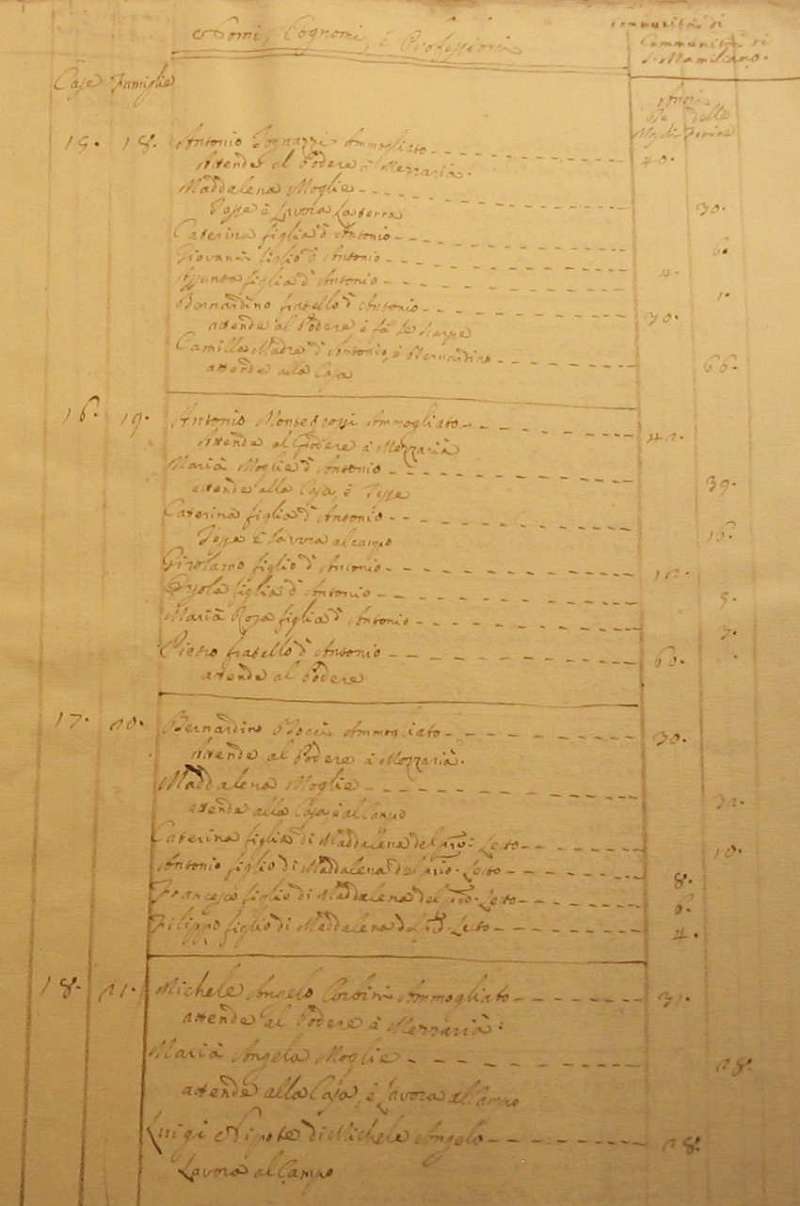 Nomi, Cognomi, e Professioni
Communità di
Case Famiglie
Anni
Delle
Femine
15. 18. Antonio Ammogliato 40.
Attende al Podere à Mezzaria.
Maddalena Moglie 30.
Tesse è Lavora La terra
Caterina figlia d'Antonio 6.
Giovanni figlio d'Antonio 4.
Assunta figlia d'Antonio 1.
Bernardino fratello d'Antonio 30.
attende al Podere è fà le
Camilla Madre d'Antonio, è Bernardino 66.
attende alla Casa
16. 19. Antonio Ammogliato 42.
Attende al Podere à Mezzaria
Maria Moglie d'Antonio 39.
attende alla Casa, è Tesse
Caterina figlia d'Antonio 16.
Tesse è lavora al campo
Girolamo figlio d'Antonio 12.
figlia d'Antonio 9.
Maria Rosa figlia d'Antonio 7.
Pietro fratello d'Antonio 60.
attende al Podere
17. 20. Bernardino Ammogliato 30.
Attende al Podere à Mezzaria.
Maddalena Moglie 32.
attende alla Casa è al Campo
Caterina figlia di Maddalena del Letto 10.
Antonio figlio di Maddalena del Letto 8.
Francesco figlio di Maddalena del Letto 6.
Filippo figlio di Maddalena del Letto 4.
18. 21. Michele Angelo Ammogliato 31.
attende al Podere à Mezzaria.
Maria Angela Moglie 28.
attende alla Casa, è Lavora al Campo
Luigi Nipote di Michele Angelo 28.
Lavora al Campo